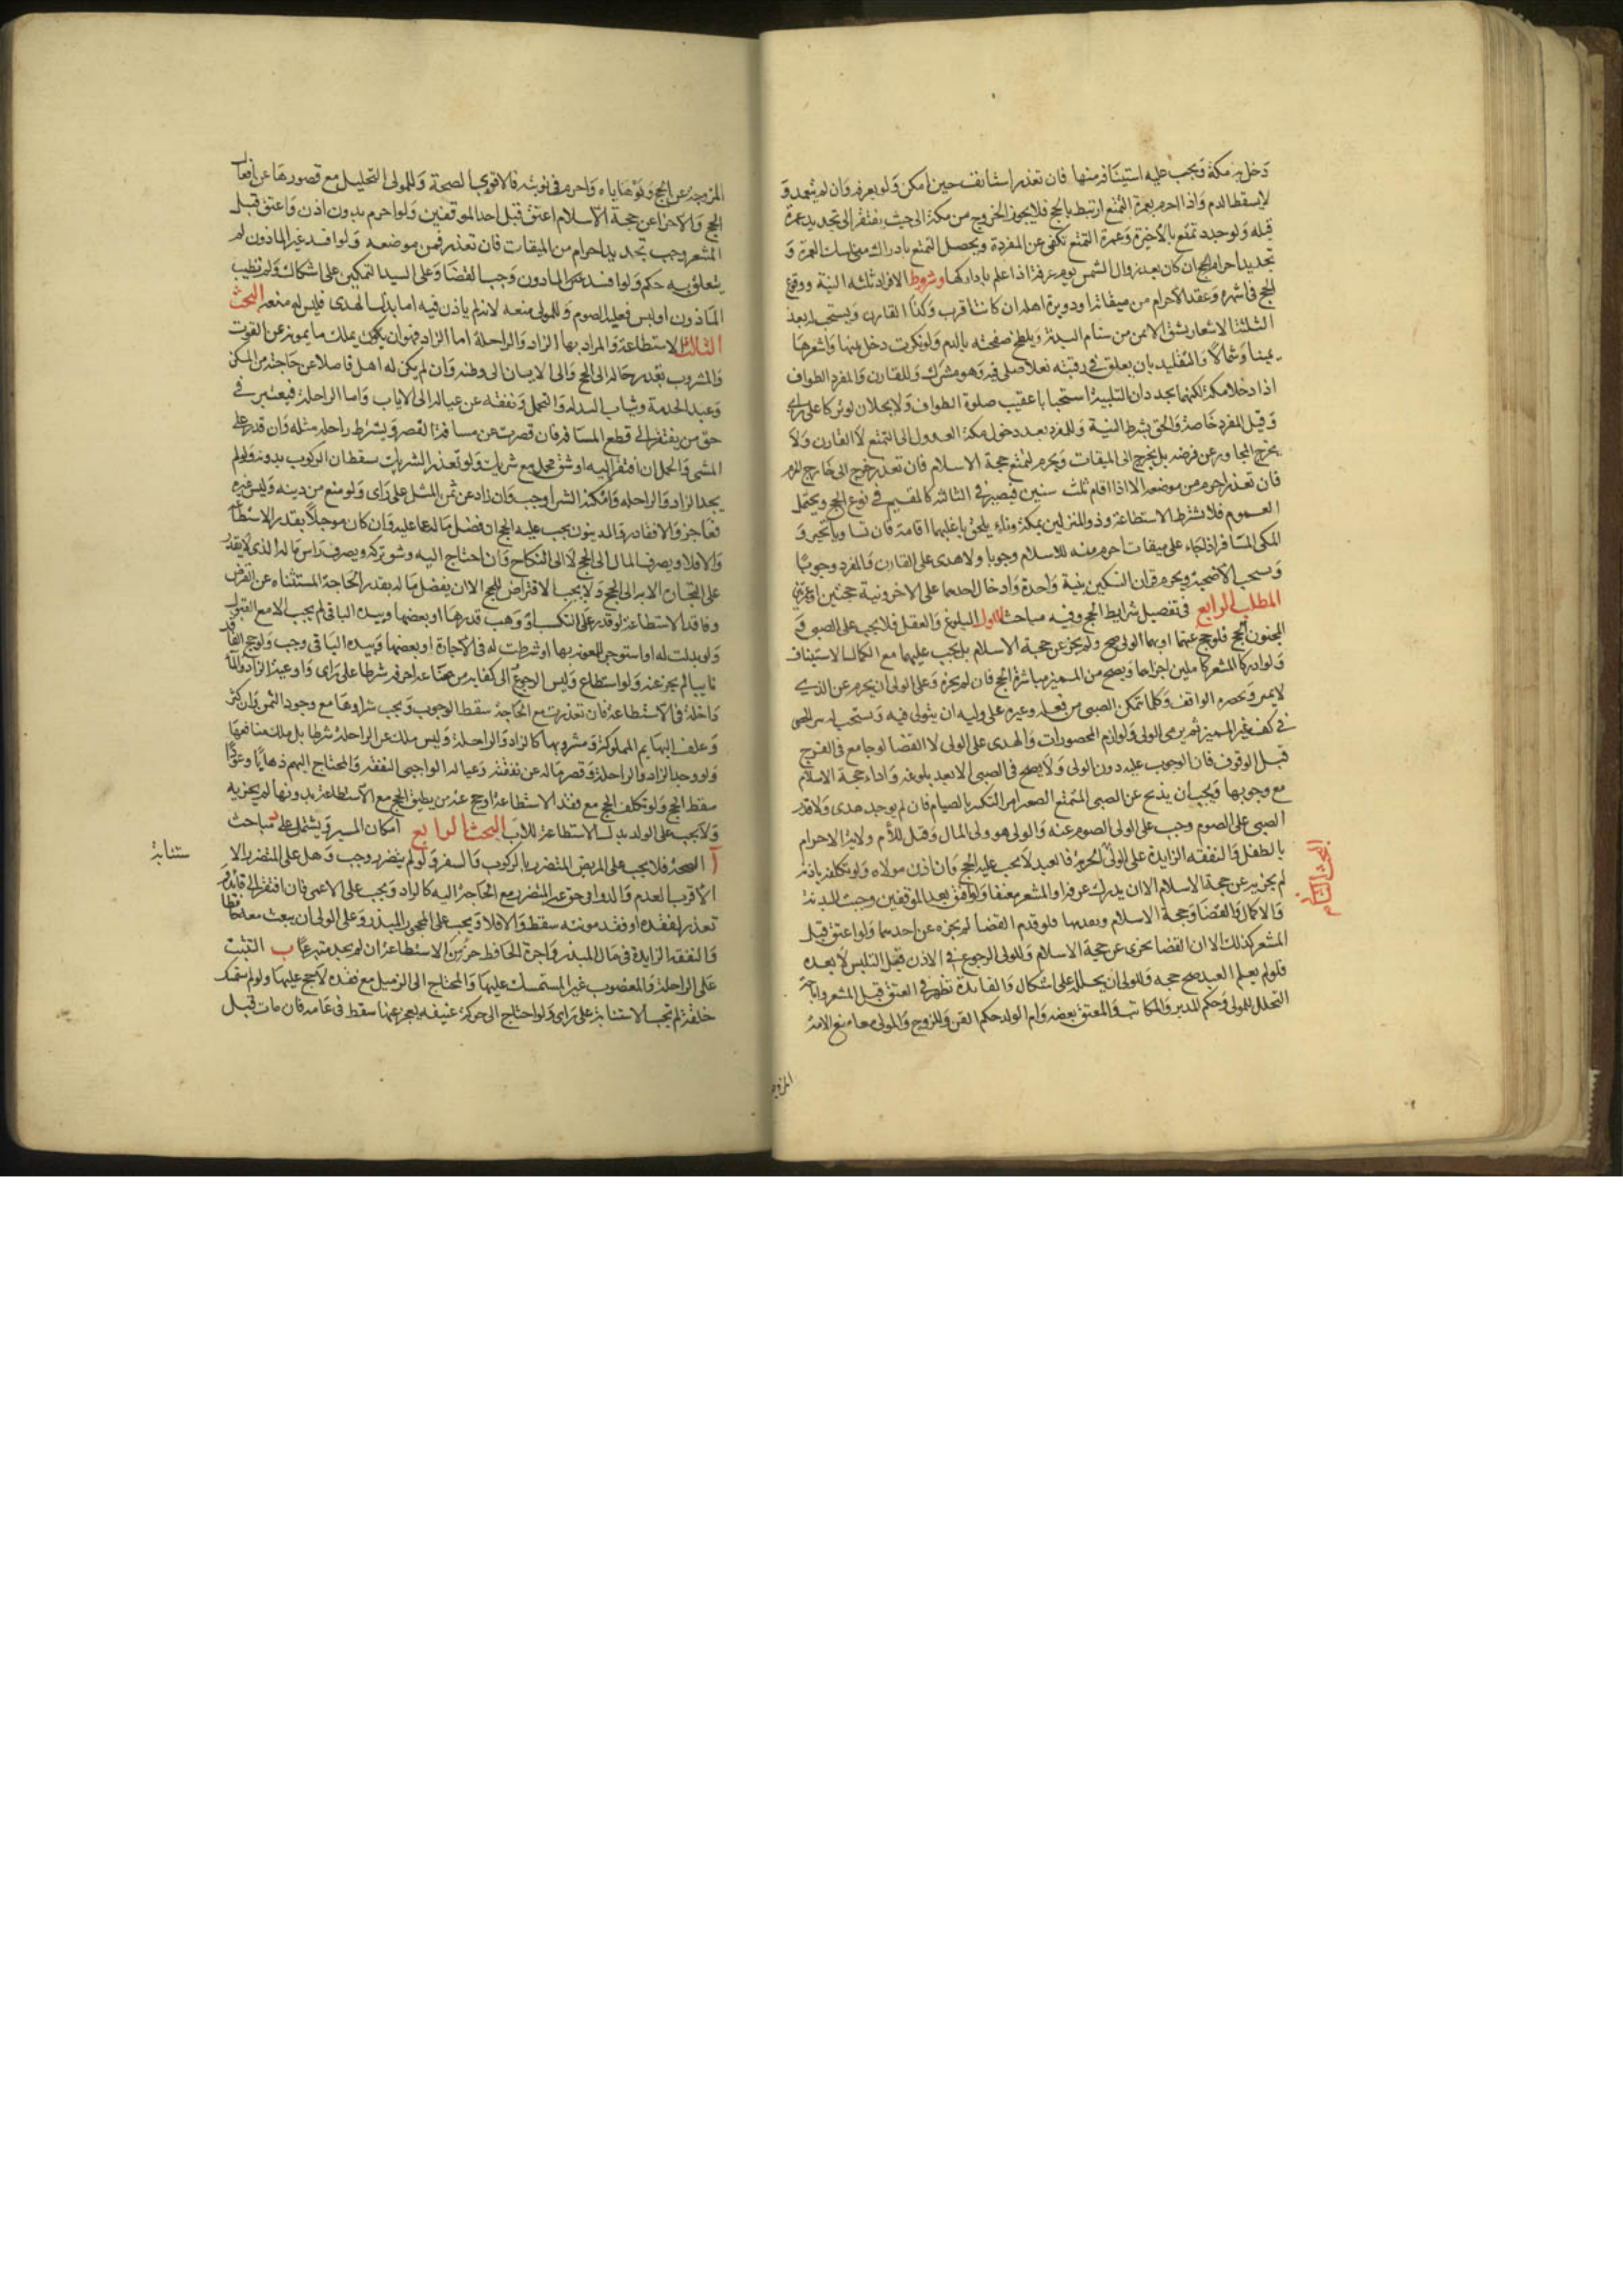 دخل مكة ويجب عليه استينافه منها فان تعذر استانف حين امكن ولو بعرفه وان لم يتعمد و
لا يسقط الدم واذا احرم بعمرة التمتع ارتبط بالحج فلا يجوز الخروج من مكة الى حيث يفتقر الى تجديد عمرة
قبله ولو جدد تمتع بالاخيرة وعمرة التمتع تكفى عن المفردة ويحصل التمتع بادراك مناسك العمرة و
تجديد احرام الحج ان كان بعد زوال الشمس يوم عرفة اذا علم بادراكها وشروط الافراد ثلثه النية ووقوع
الحج فى اشهره وعقد الاحرام من ميقاته او دويرة اهله ان كانت اقرب وكذا القارن ويستحب له بعد
الثلثة الاشعار بشق الايمن من سنام البدنة ويلطخ صفحته بالدم ولو تكثرت دخل بينها واشعرها
يمينا وشمالا والتقليد بان يعلق فى رقبته نعلا صلى فيه وهو مشترك وللقارن والمفرد الطواف
اذا دخلا مكة لكنهما يجددان التلبية استحبابا عقيب صلوة الطواف ولا يحلان لو تركا على راى
وقيل المفرد خاصة والحق بشرط النية وللمفرد بعد دخول مكة العدول الى التمتع لا القارن ولا
يخرج المجاور عن فرضه بل يخرج الى الميقات ويحرم لتمتع حجة الاسلام فان تعذر خرج الى خارج الحرم
فان تعذر احرم من موضعه الا اذا اقام ثلث سنين فيصير فى الثالثه كالمقيم فى نوع الحج ويحتمل
العموم فلا يشترط الاستطاعة وذو المنزلين بمكة وناء يلحق باغلبهما اقامة فان تساويا تخير و
المكى المسافر اذا جاء على ميقات احرم منه للاسلام وجوبا ولا هدى على القارن والمفرد وجوبا
وتستحب الاضحية ويحرم قران النسكين بنية واحدة وادخال احدهما على الاخر ونية حجتين او عمرتين
المطلب الرابع فى تفصيل شرايط الحج وفيه مباحث الاول البلوغ والعقل فلا يجب على الصبى و
المجنون الحج فلو حج عنهما او بهما الولى صح ولم يجز عن حجة الاسلام بل يجب عليهما مع الكمال الاستيناف
ولو ادركا المشعر كاملين اجزاهما ويصح من المميز مباشرة الحج فان لم يجزه وعلى الولى ان يحرم عن الذى
لا يميز ويحضره المواقف وكلما يتمكن الصبى من فعله وغيره على وليه ان يتولى فيه ويستحب له ترك الحصى
فى كف غير المميز ثم يرمى الولى ولوازم المحظورات والهدى على الولى لا القضا لو جامع فى الفرج
قبل الوقوف فان الوجوب عليه دون الولى ولا يصح فى الصبى الا بعد بلوغه واداء حجة الاسلام
مع وجوبها ويجب ان يذبح عن الصبى المتمتع الصغير امر الكبير بالصيام فان لم يوجد هدى ولا قدر
الصبى على الصوم وجب على الولى الصوم عنه والولى هو ولى المال وقيل للام ولاية الاحرام
بالطفل والنفقه الزايدة على الولى الحرية فالعبد لا يجب عليه الحج وان اذن مولاه ولو تكلفه باذنه
لم يجزيه عن حجة الاسلام الا ان يدرك عرفه او المشعر معتقا ولو افسد بعد الموقفين وجبت البدنة
والاكمال والقضا وحجة الاسلام وبعدها فلو قدم القضا لم يجزه عن احدهما ولو اعتق قبل
المشعر كذلك الا ان القضا يجزى عن حجة الاسلام وللولى الرجوع فى الاذن قبل التلبس لا بعده
فلو لم يعلم العبد صح حجه وللولى ان يحلله على اشكال والفايدة تظهر فى العتق قبل المشعر واباحة
التحلل للمولى وحكم المدبر والمكاتب والمعتق بعضه وام الولد حكم القن وللزوج والمولى معا منع الامة
البحث الثانى
المزوجة
المزوجة عن الحج ولو هاياه واحرم فى نوبته فالاقوى الصحة وللمولى التحليل مع قصورها عن افعال
الحج والاجزا عن حجة الاسلام اعتق قبل احد الموقفين ولو احرم بدون اذن واعتق قبل
المشعر وجب تجديد احرام من الميقات فان تعذر فمن موضعه ولو افسد غير الماذون لم
يتعلق به حكم ولو افسد الماذون وجب القضا وعلى السيد التمكين على اشكال ولو تطيب
الماذون او لبس فعليه الصوم وللمولى منعه لانه لم ياذن فيه اما بدل الهدى فليس له منعه البحث
الثالث الاستطاعة والمراد بها الزاد والراحلة اما الزاد فهو ان يكون يملك ما يمونه عن القوت
والمشروب بقدر حاله الى الحج والى الاياب الى وطنه وان لم يكن له اهل فاضلا عن حاجته من المسكن
وعبد الخدمة وثياب البدلة والتجمل ونفقه عن عياله الى الاياب واما الراحلة فيعتبر فى
حق من يفتقر الى قطع المسافه فان قصرت عن مسافة القصر ويشترط راحلة مثله وان قدر على
المشى والمحمل ان افتقر اليه او شق محمل مع شريك ولو تعذر الشريك سقط ان الركوب بدونه ولو لم
يجد الزاد والراحلة وامكنه الشرا وجب وان زاد عن ثمن المثل على راى ولو منع من دينه وليس غيره
فعاجز والا فقادر والمديون يجب عليه الحج ان فضل ماله عما عليه وان كان موجلا بقدر الاستطاعة
والا فلا ويصرف المال الى الحج لا الى النكاح وان احتاج اليه وشق تركه ويصرف راس ماله الذى لا يقدر
على التجارة الا به الى الحج ولا يجب الاقتراض للحج الا ان يفضل ماله بقدر الحاجة المستثناه عن القرض
وفاقد الاستطاعة لو قدر على التكسب او وهب قدرها او بعضها وبيده الباقى لم يجب الا مع القبول
ولو بذلت له او استوجر للمعونه بها او شرطت له فى الاجارة او بعضها وبيده الباقى وجب ولو حج الفاقد
نايبا لم يجز عنه ولو استطاع وليس الرجوع الى كفايه من صناعة او حرفه شرطا على راى واوعية الزاد والماء
داخلة فى الاستطاعة فان تعذرت مع الحاجة سقط الوجوب ويجب شراوها مع وجود الثمن وان كثر
وعلف البهايم المملوكة ومشروبها كالزاد والراحلة وليس ملك عين الراحلة شرطا بل ملك منافعها
ولو وجد الزاد والراحلة وقصر ماله عن نفقته وعياله الواجبى النفقه والمحتاج اليهم ذهابا وعودا
سقط الحج ولو تكلف الحج مع فقد الاستطاعة او حج عنه من يطيق الحج مع الاستطاعة بدونها لم يجزيه
ولا يجب على الولد بذل الاستطاعة للاب البحث الرابع امكان المسير ويشتمل على مباحث
آ الصحة فلا يجب على المريض المتضرر بالركوب والسفر ولو لم يتضرر وجب وهل على المتضرر الا
ستنابة
الاقرب العدم والدواء فى حق غير المتضرر مع الحاجة اليه كالزاد ويجب على الاعمى فان افتقر الى قايد و
تعذر لفقده او فقد مونته سقط والا فلا ويجب على المحجور المبذر وعلى الولى ان يبعث معه حافظا
والنفقه الزايدة فى مال المبذر واجرة الحافظ جزء من الاستطاعة ان لم يجد متبرعا ب التثبت
على الراحلة والمعضوب غير المستمسك عليها والمحتاج الى الزميل مع فقده لا حج عليهما ولو لم يستمسك
خلقة لم تجب الاستنابة على راى ولو احتاج الى حركة عنيفه يعجز عنها سقط فى عامه فان مات قبل